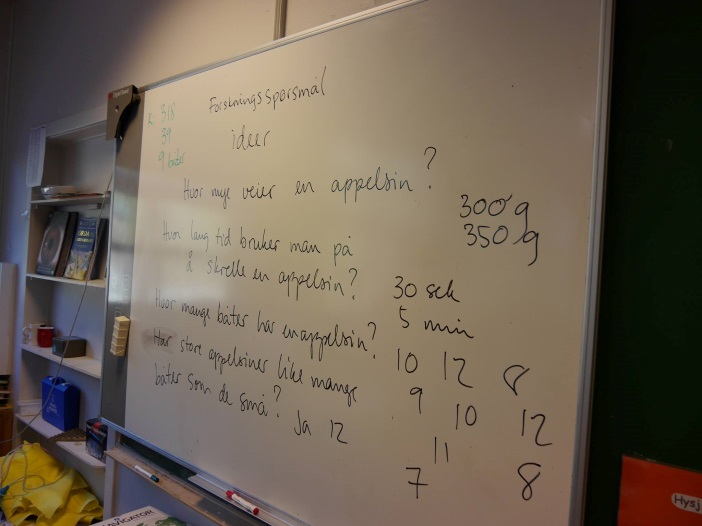 K. 318
39
9 båter
Forskningsspørsmål
ideer
Hvor mye veier en appelsin?
300 g
350 g
Hvor lang tid bruker man på
å skrelle en appelsin?
30 sek
5 min
Hvor mange båter har en appelsin?
10 12 8
9 10 12
11
7 8
Har store appelsiner like mange
båter som de små? Ja 12
Hysj